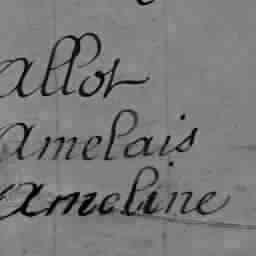 Allot
Amelais
Ameline